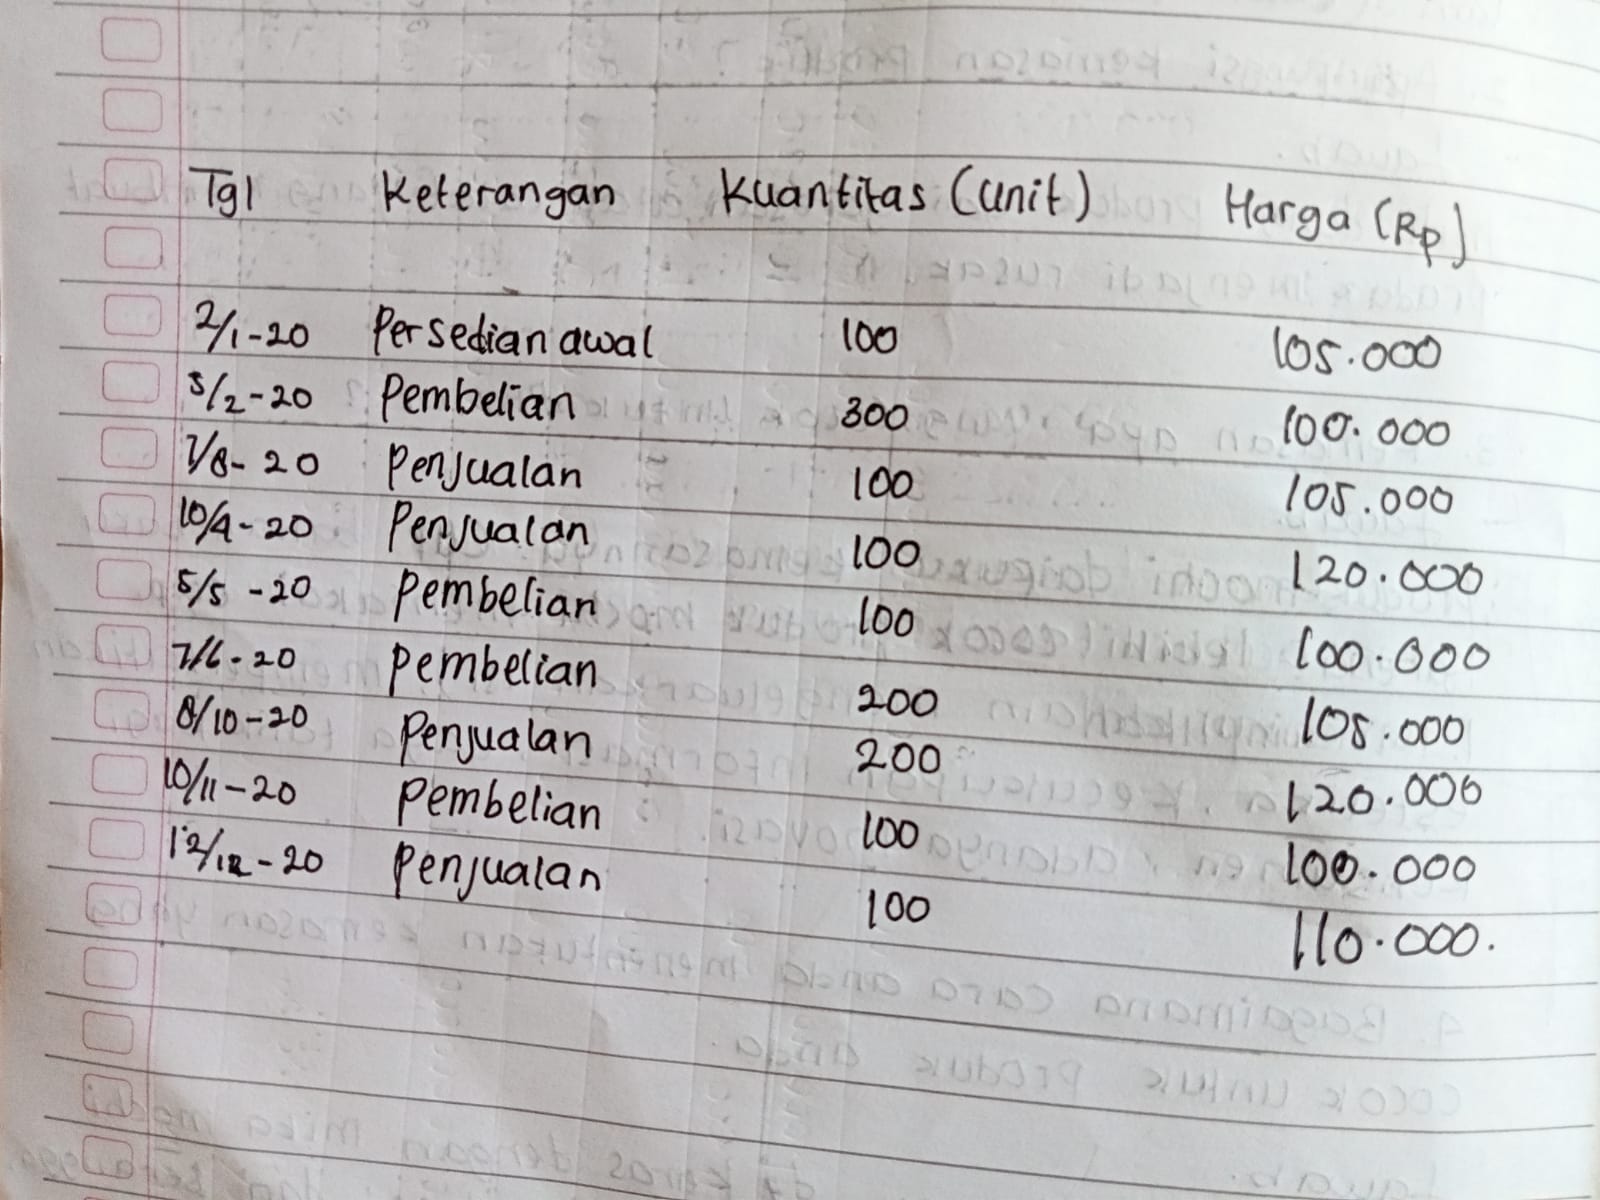 Tgl Keterangan Kuantitas (unit) Harga (Rp)
2/1-20 Persedian awal 100 105.000
5/2-20 Pembelian 300 100.000
7/8-20 Penjualan 100 105.000
10/4-20 Penjualan 100 120.000
5/5-20 Pembelian 100 100.000
7/6-20 Pembelian 200 105.000
8/10-20 Penjualan 200 120.000
10/11-20 Pembelian 100 100.000
12/12-20 Penjualan 100 110.000.